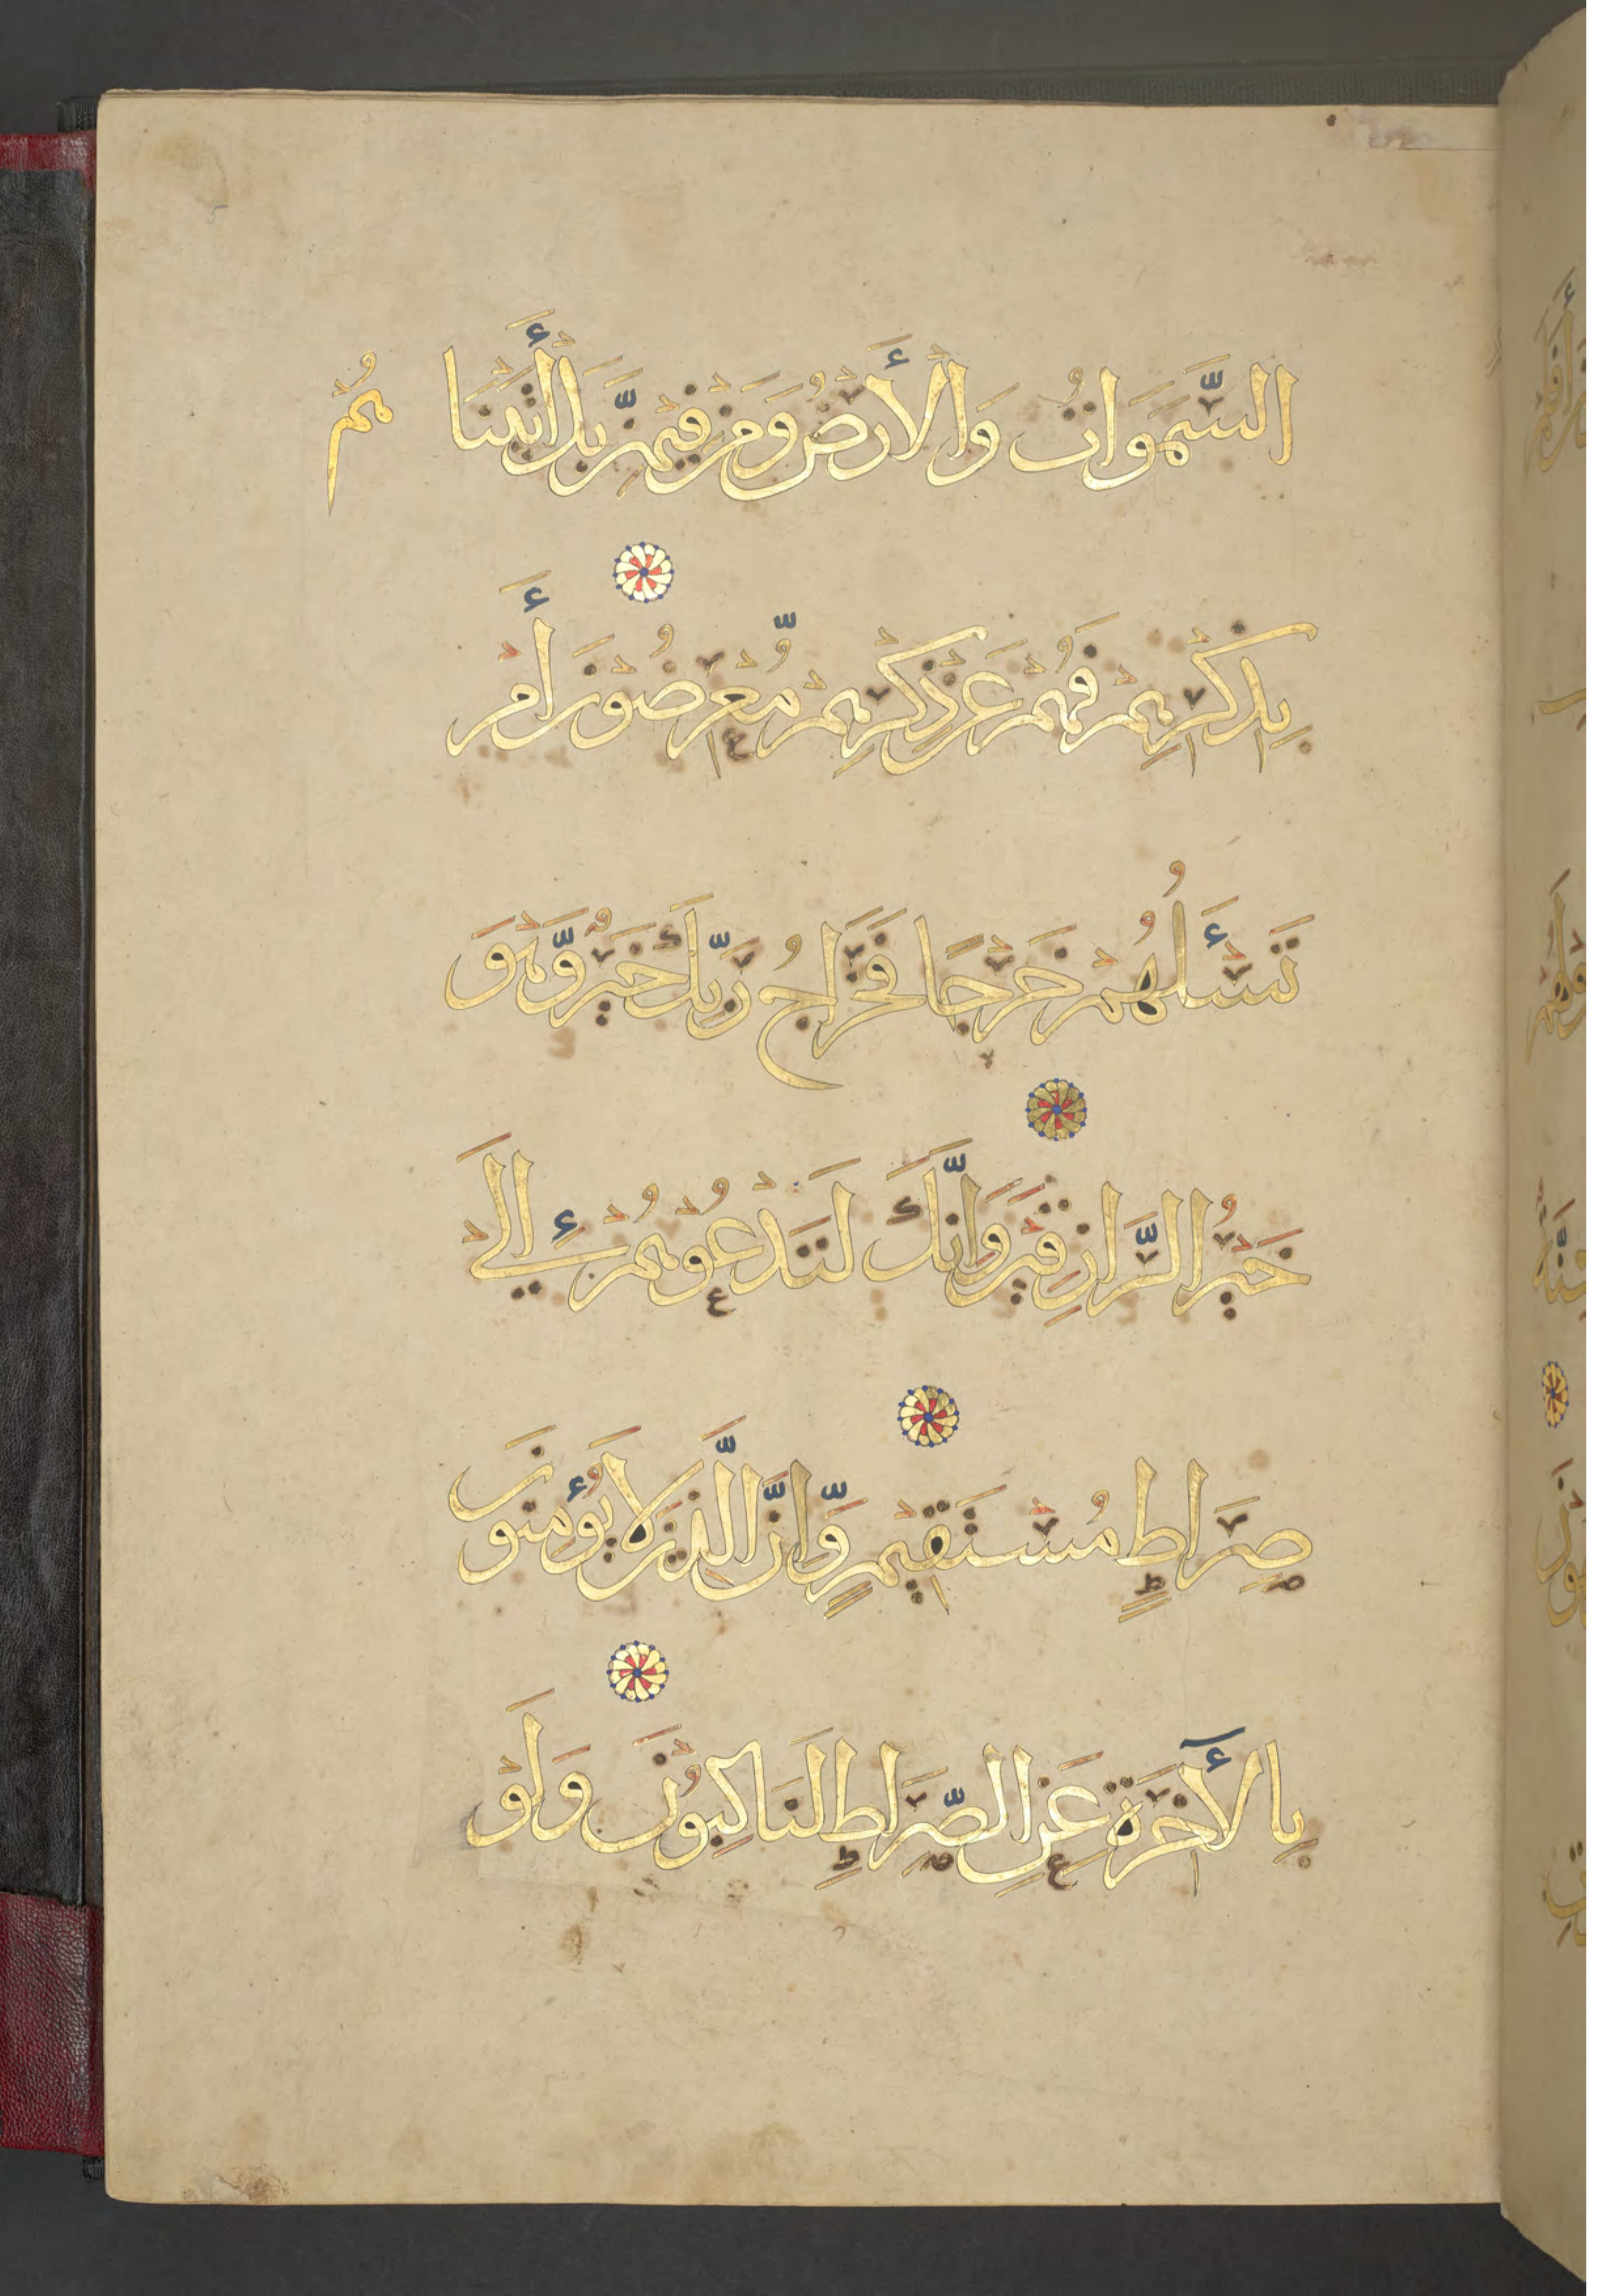 السَّمَوَاتُ وَالْأَرْضُ وَمَنْ فِيْهِنَّ بَلْ أَتَيْنَا هُمْ
بِذِكْرِهِمْ فَهُمْ عَنْ ذِكْرِهِمْ مُّعْرِضُوْنَ أَمْ
تَسْئَلُهُمْ خَرْجًا فَخَرَاجُ رَبِّكَ خَيْرٌ وَّهُوَ
خَيْرُ الرَّازِقِيْنَ وَانَّكَ لَتَدْعُوْهُمْ إِلَى
صِرَاطٍ مُسْتَقِيْمٍ وَّانَّ الَّذِيْنَ لَا يُؤْمِنُوْنَ
بِالْأٓخِرَةِ عَنِ الصِّرَاطِ لَنَاكِبُوْنَ وَلَوْ